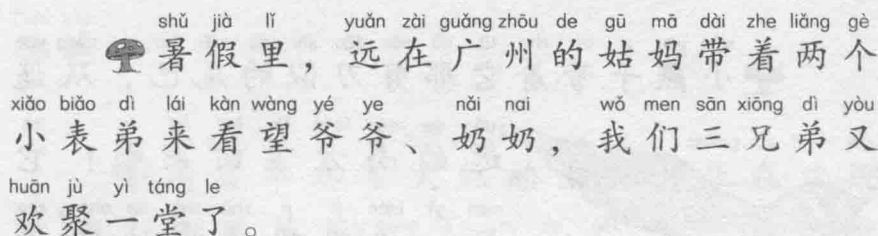 shǔ jià lǐ yuǎn zài guǎng zhōu de gū mā dài zhe liǎng gè
暑假里，远在广州的姑妈带着两个
xiǎo biǎo dì lái kàn wàng yé ye nǎi nai wǒ men sān xiōng dì yòu
小表弟来看望爷爷、奶奶，我们三兄弟又
huān jù yì táng le
欢聚一堂了。